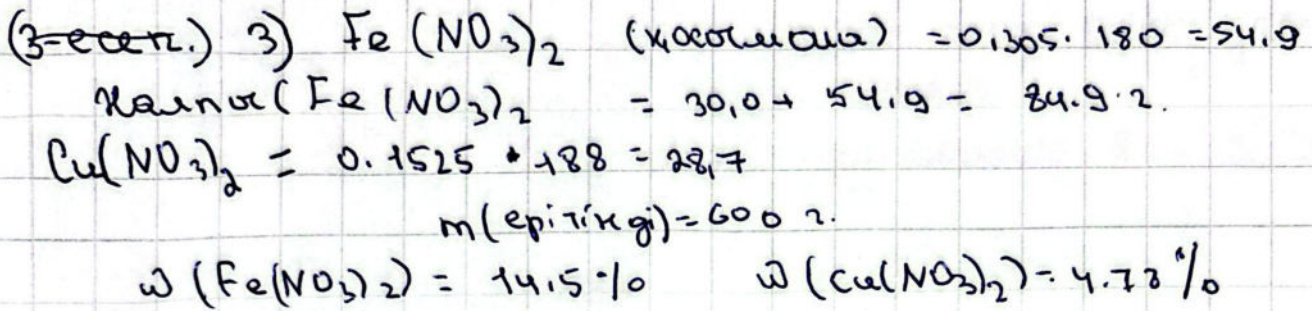 (3-есеп.) 3) Fe(NO₃)₂ (қосылыста) = 0,305 · 180 = 54.9
Жалпы (Fe(NO₃)₂ = 30,0 + 54.9 = 84.9 г.
Cu(NO₃)₂ = 0.1525 • 188 = 28,7
m(ерітінді) = 600 г.
ω(Fe(NO₃)₂) = 14.5% ω(Cu(NO₃)₂) = 4.78%